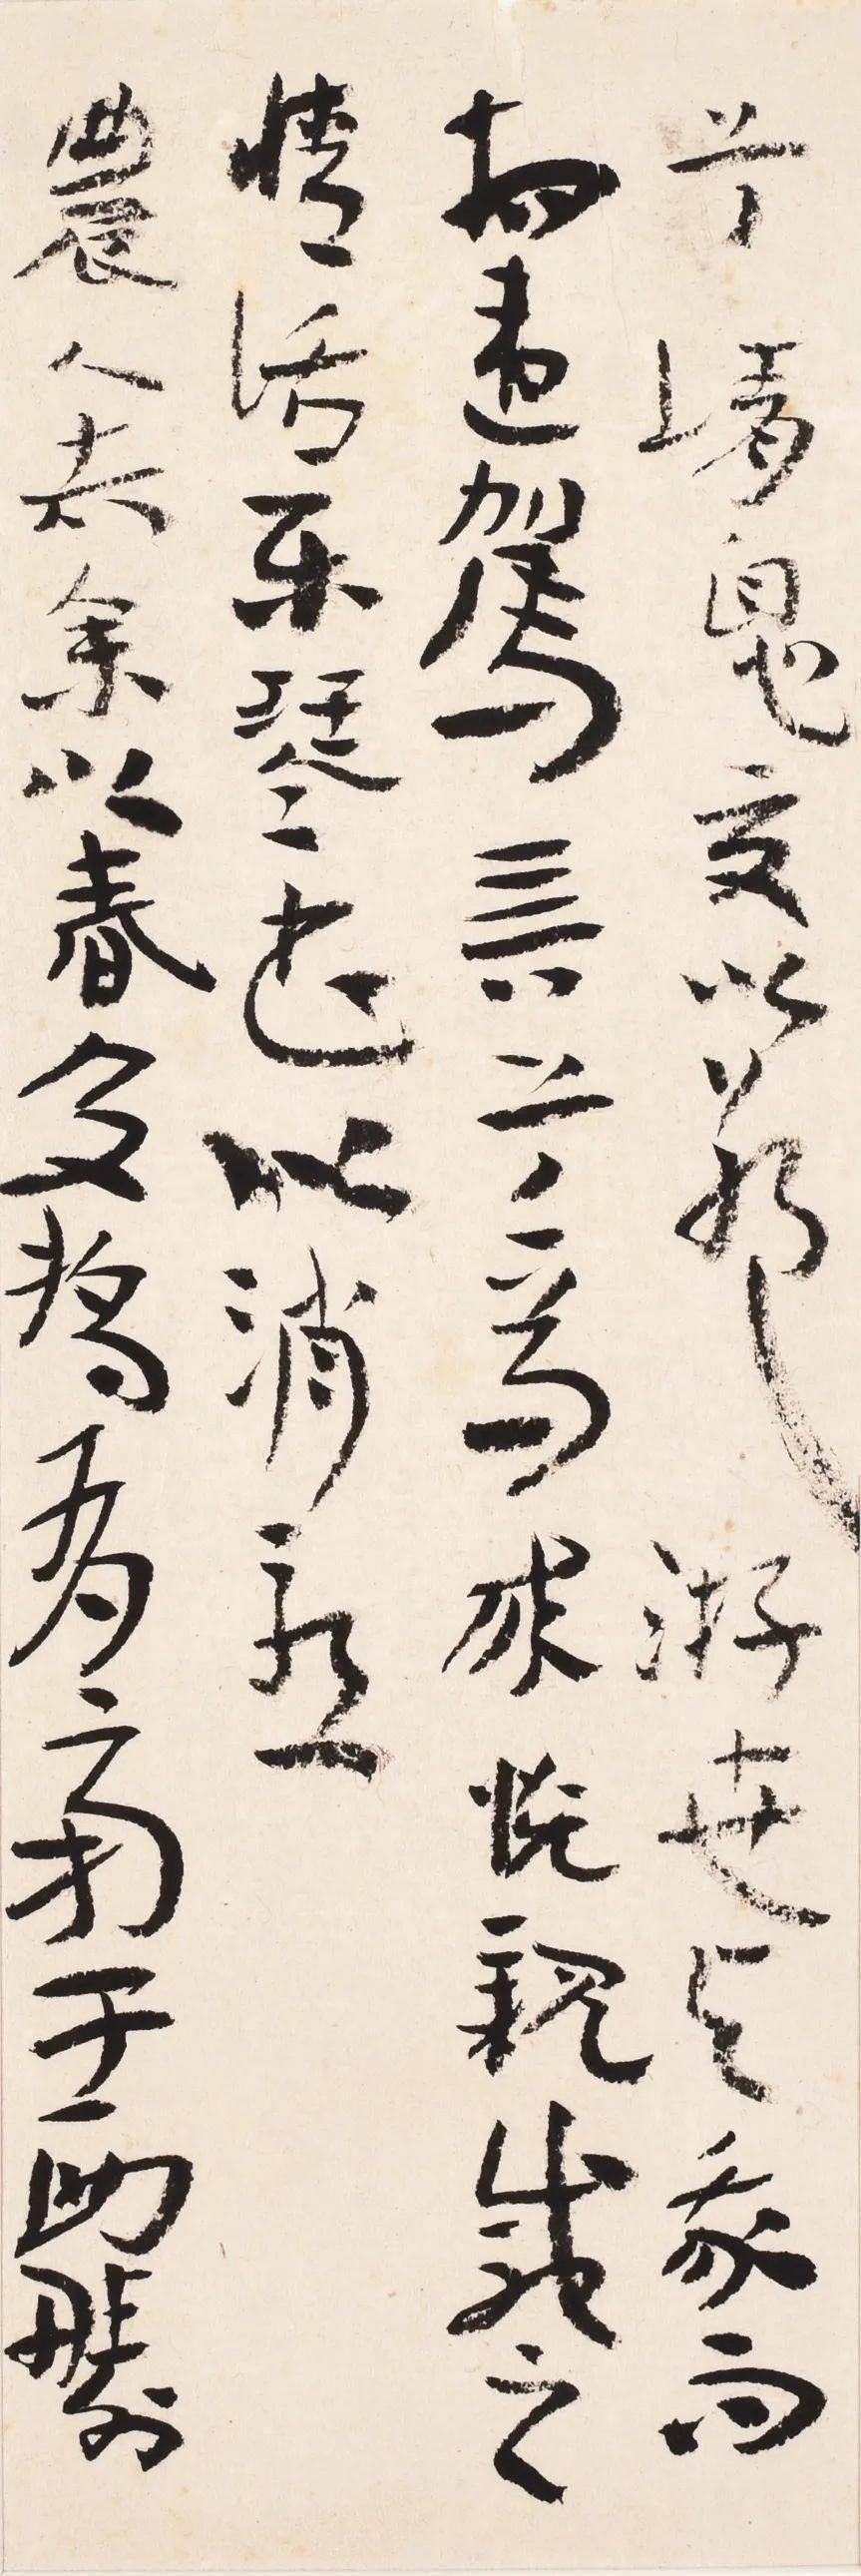 兮請息交以絕游世與我而
相遺駕言兮焉求悅親戚之
情話樂琴書以消憂
農人告余以春及將有事于西疇